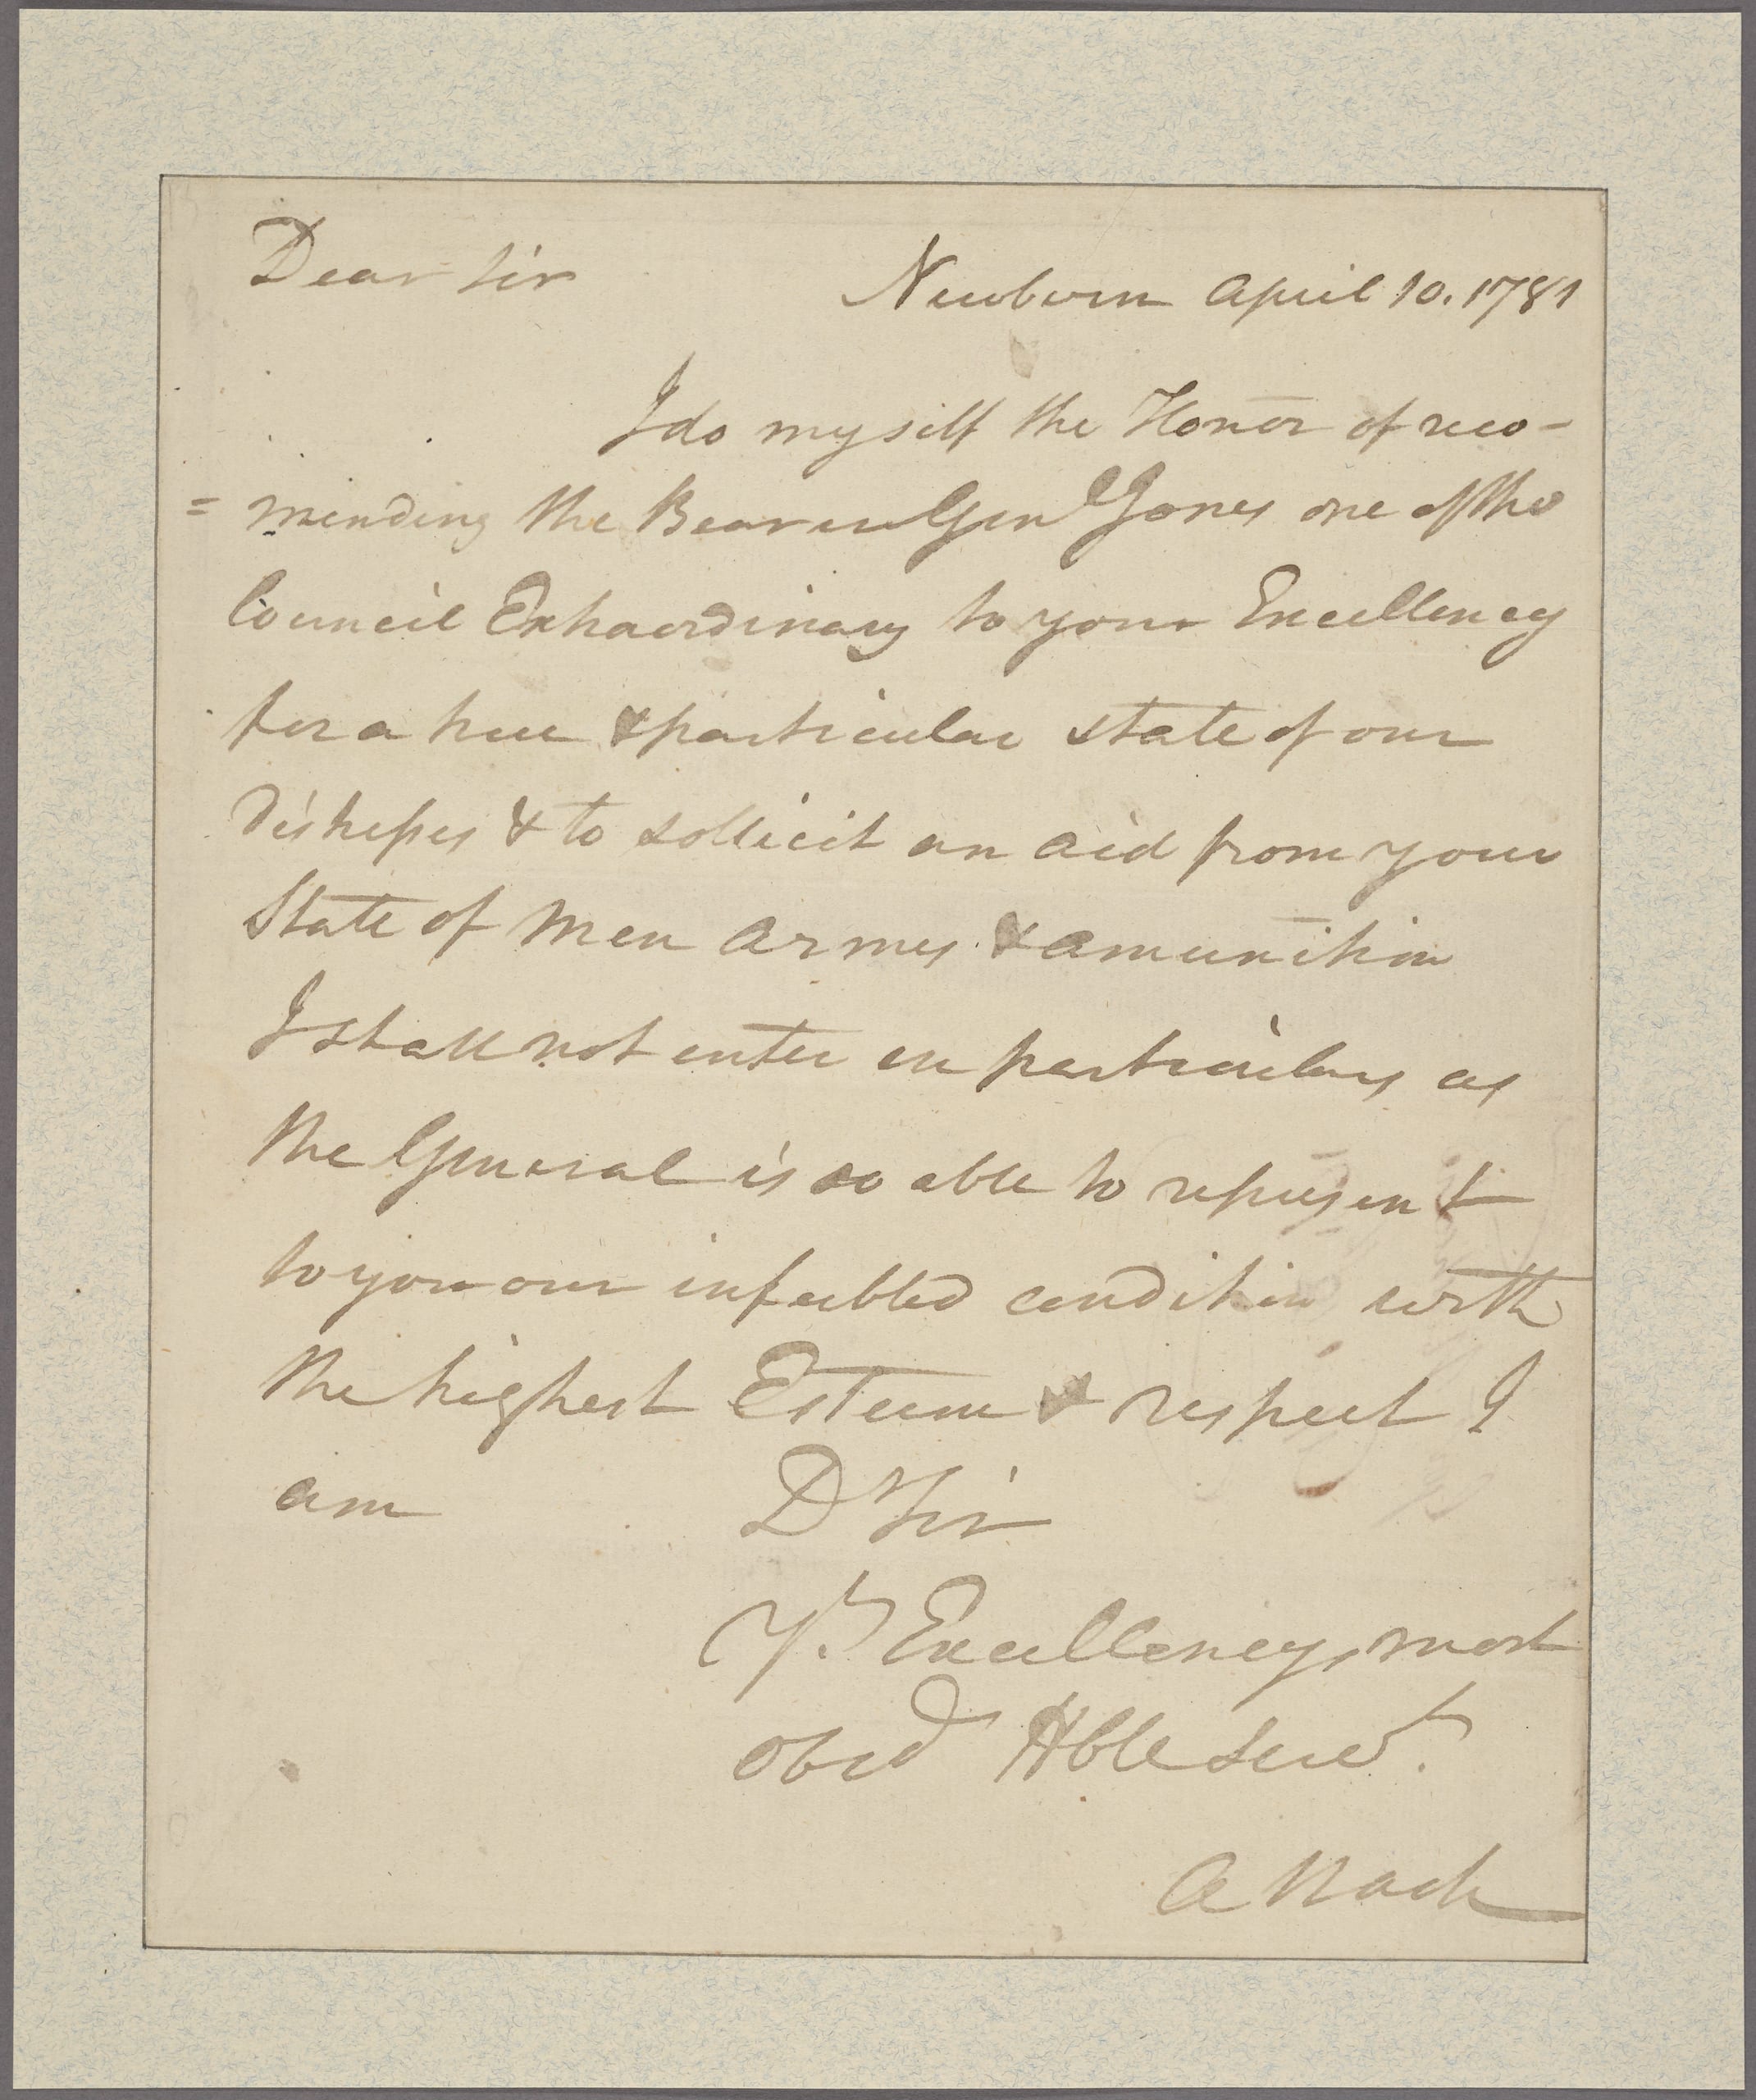 Dear Sir
Newbern April 10. 1781
I do myself the Honor of reco-
=mending the Bearer Gen Jones one of the
Council Extraordinary to your Excellency
for a true & particular state of our
distresses & to sollicit an aid from your
State of Men Armes & amunition
I shall not enter in particulars as
the General is so able to represent
to you our infeebled condition with
the highest Esteem & respect I
am D Sir
Yr. Excellencys most
obed Hble Servt.
A Nash